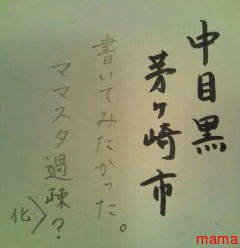 中目黒
茅ヶ崎市
書いてみたかった。
ママスタ過疎?
化
mama